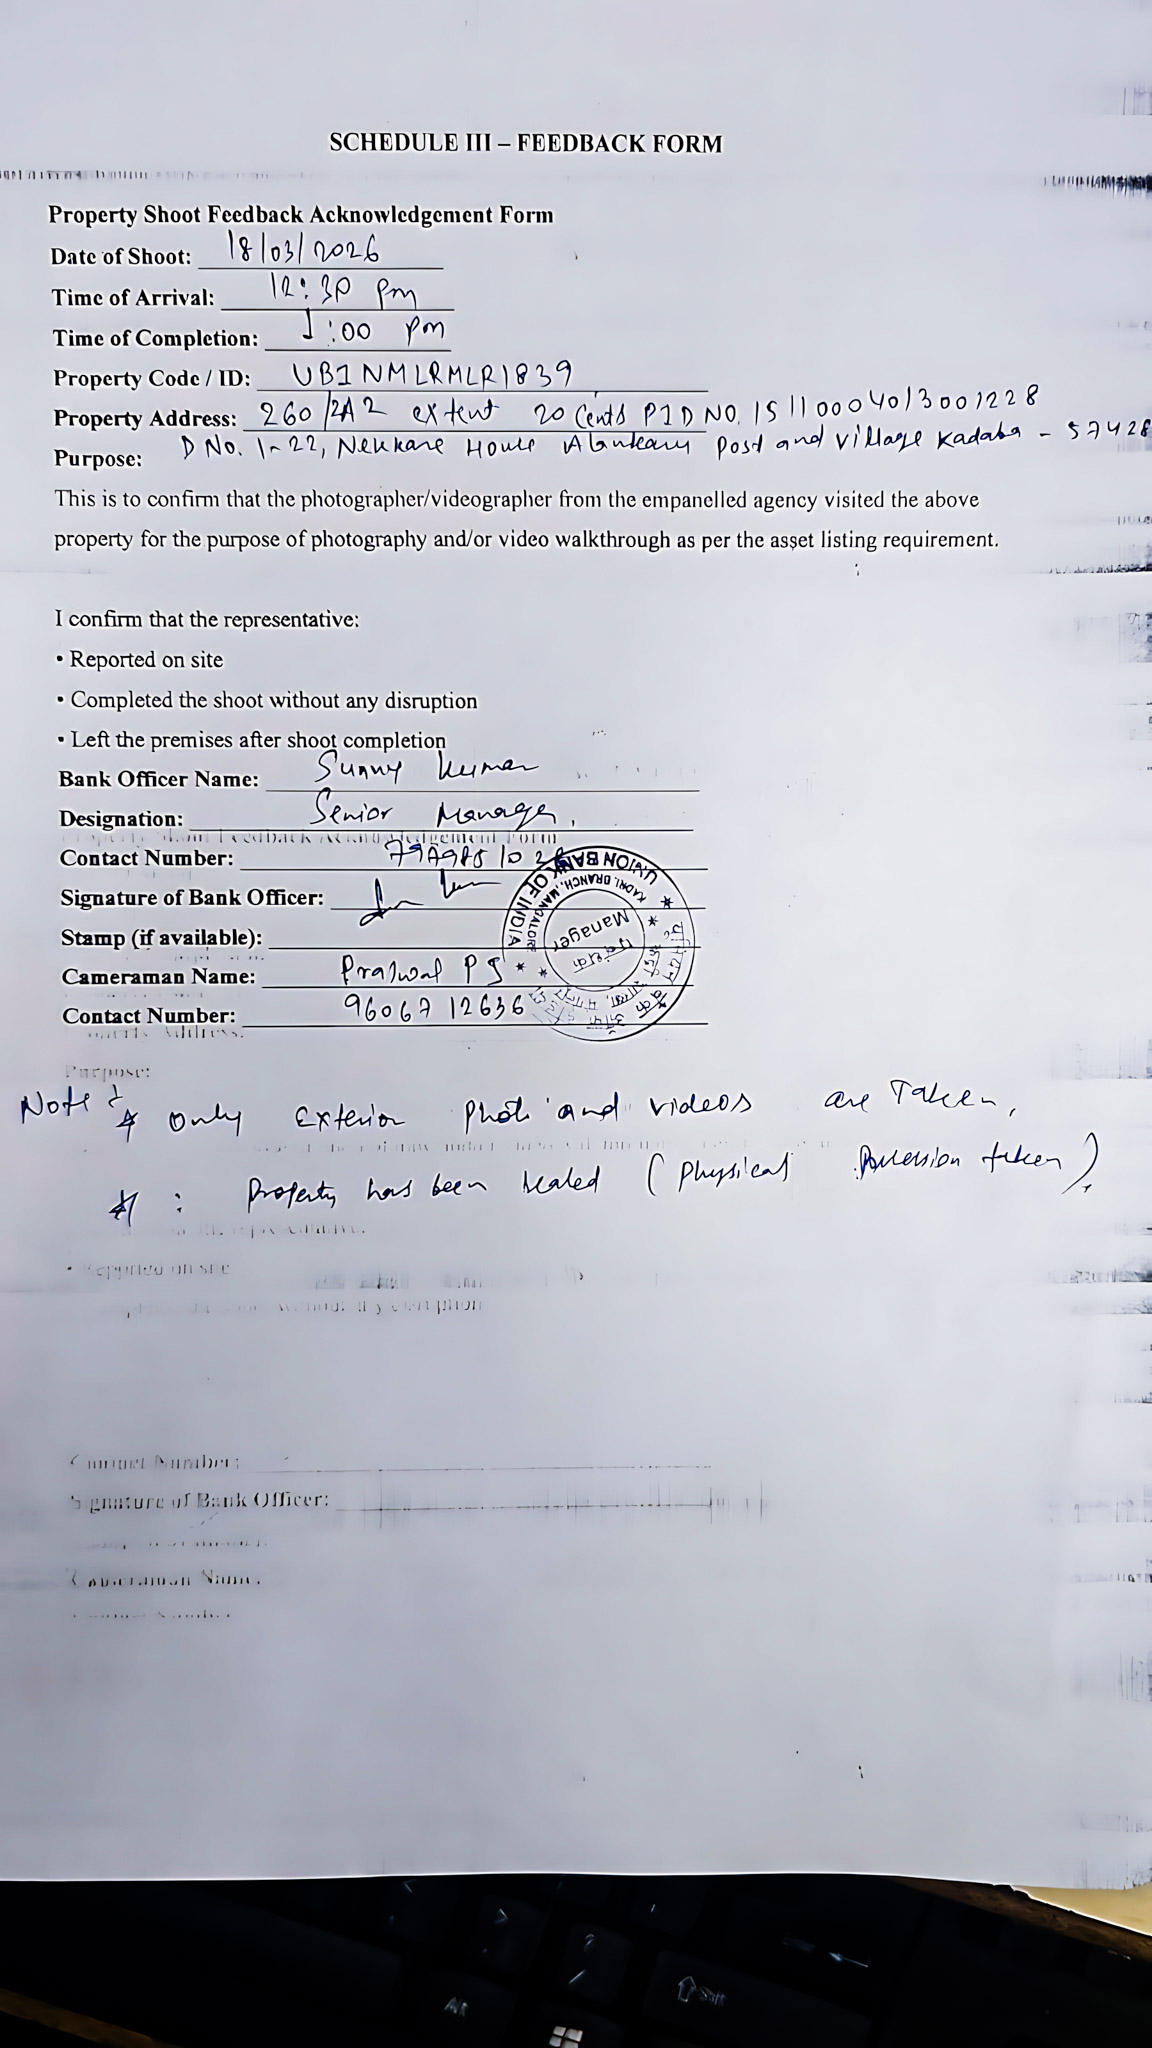 SCHEDULE III – FEEDBACK FORM
Property Shoot Feedback Acknowledgement Form
Date of Shoot: 18/03/2026
Time of Arrival: 12:30 pm
Time of Completion: 1:00 pm
Property Code / ID: UBINMLRMLR1839
Property Address: 260/2A2 extent 20 Cents PID NO.
D No. 1-22, House Post and Village Kadaba -
Purpose:
This is to confirm that the photographer/videographer from the empanelled agency visited the above
property for the purpose of photography and/or video walkthrough as per the asset listing requirement.
I confirm that the representative:
• Reported on site
• Completed the shoot without any disruption
• Left the premises after shoot completion
Bank Officer Name: Sunny Kumar
Designation: Senior Manager,
Contact Number:
Signature of Bank Officer:
UNION BANK OF INDIA
KADRI BRANCH, MANGALORE
Manager
Stamp (if available):
Cameraman Name: PS
Contact Number: 9606712636
Purpose:
Note: * Only Exterior photo and videos are Taken,
* : Property has been sealed (Physical taken)
• Reported on site
Contact Number:
Signature of Bank Officer:
Cameraman Name:
Alt
Shift